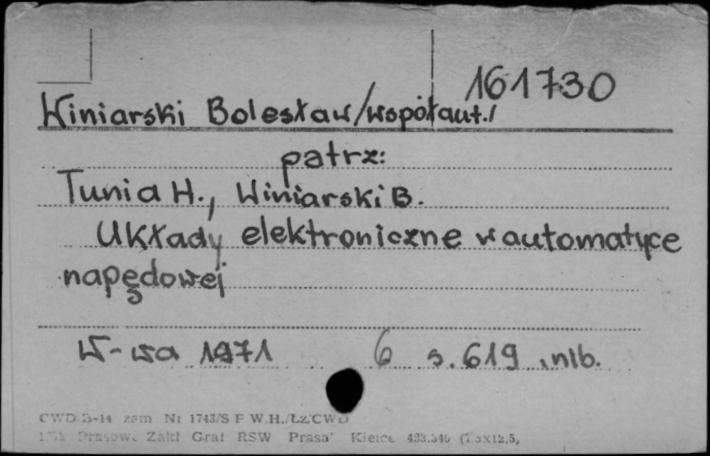 161730
Winiarski Bolesław/współaut./
patrz:
Tunia H., Winiarski B.
Układy elektroniczne w automatyce
napędowej
W-wa 1971 6 s. 619 , nlb.
CWD B-14 zam Nr 1743/S F W.H./Łz/CWD
Prasowe Zakł Graf RSW "Prasa" Kielce